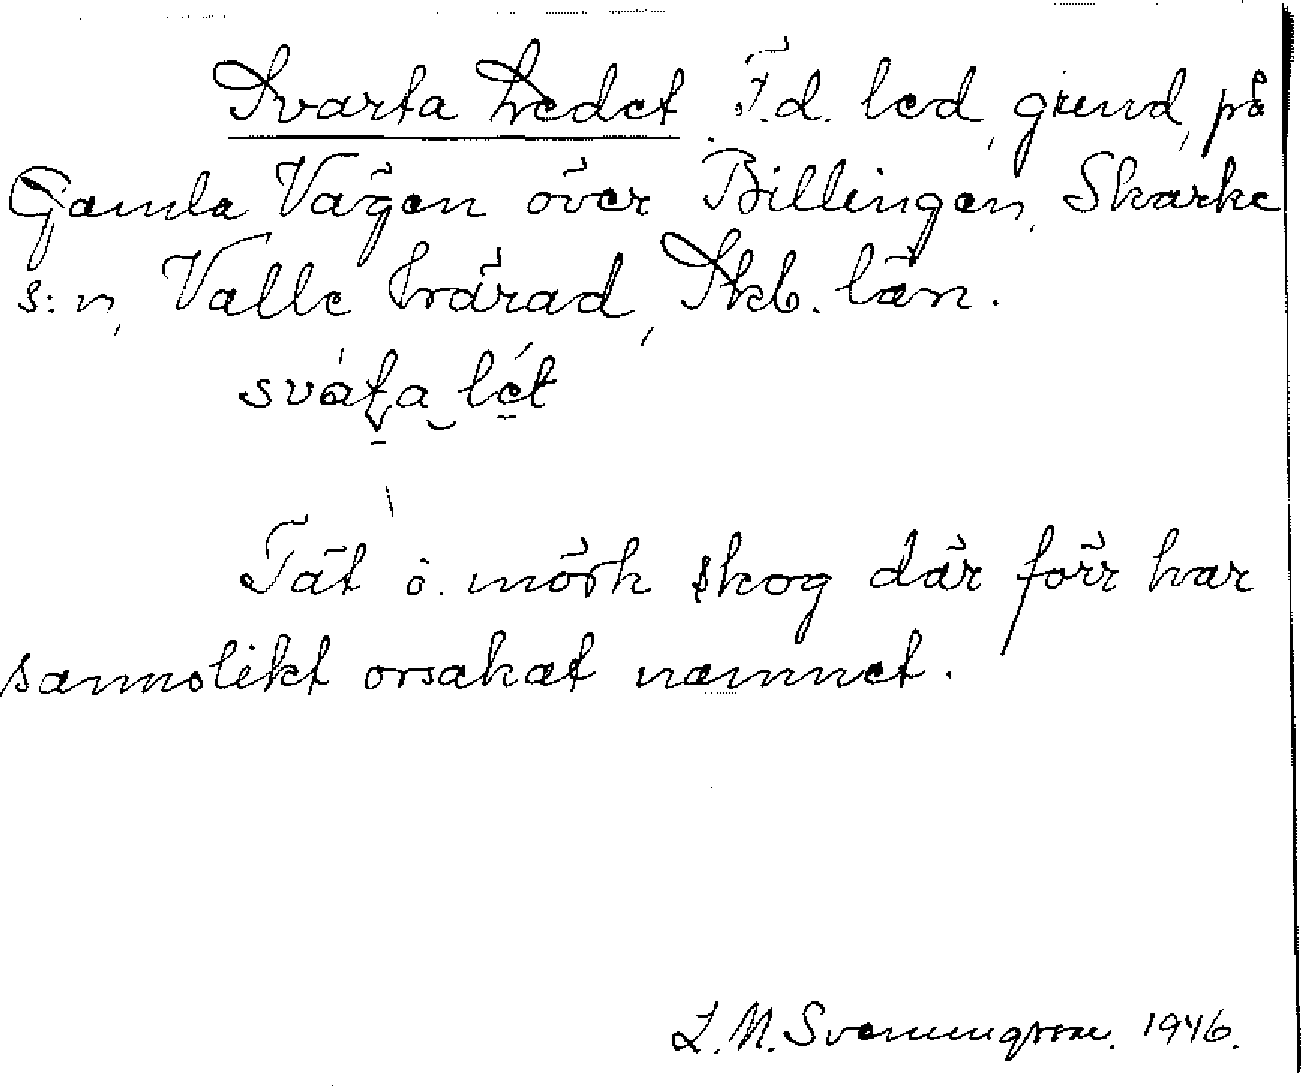 Svarta Ledet. F.d. led, grind, på
Gamla Vägen över Billingen, Skarke
s:n, Valle härad, Skb. län.
Tät o. mörk skog där förr har
sannolikt orsakat namnet.
L. M. Svenungsson. 1946.